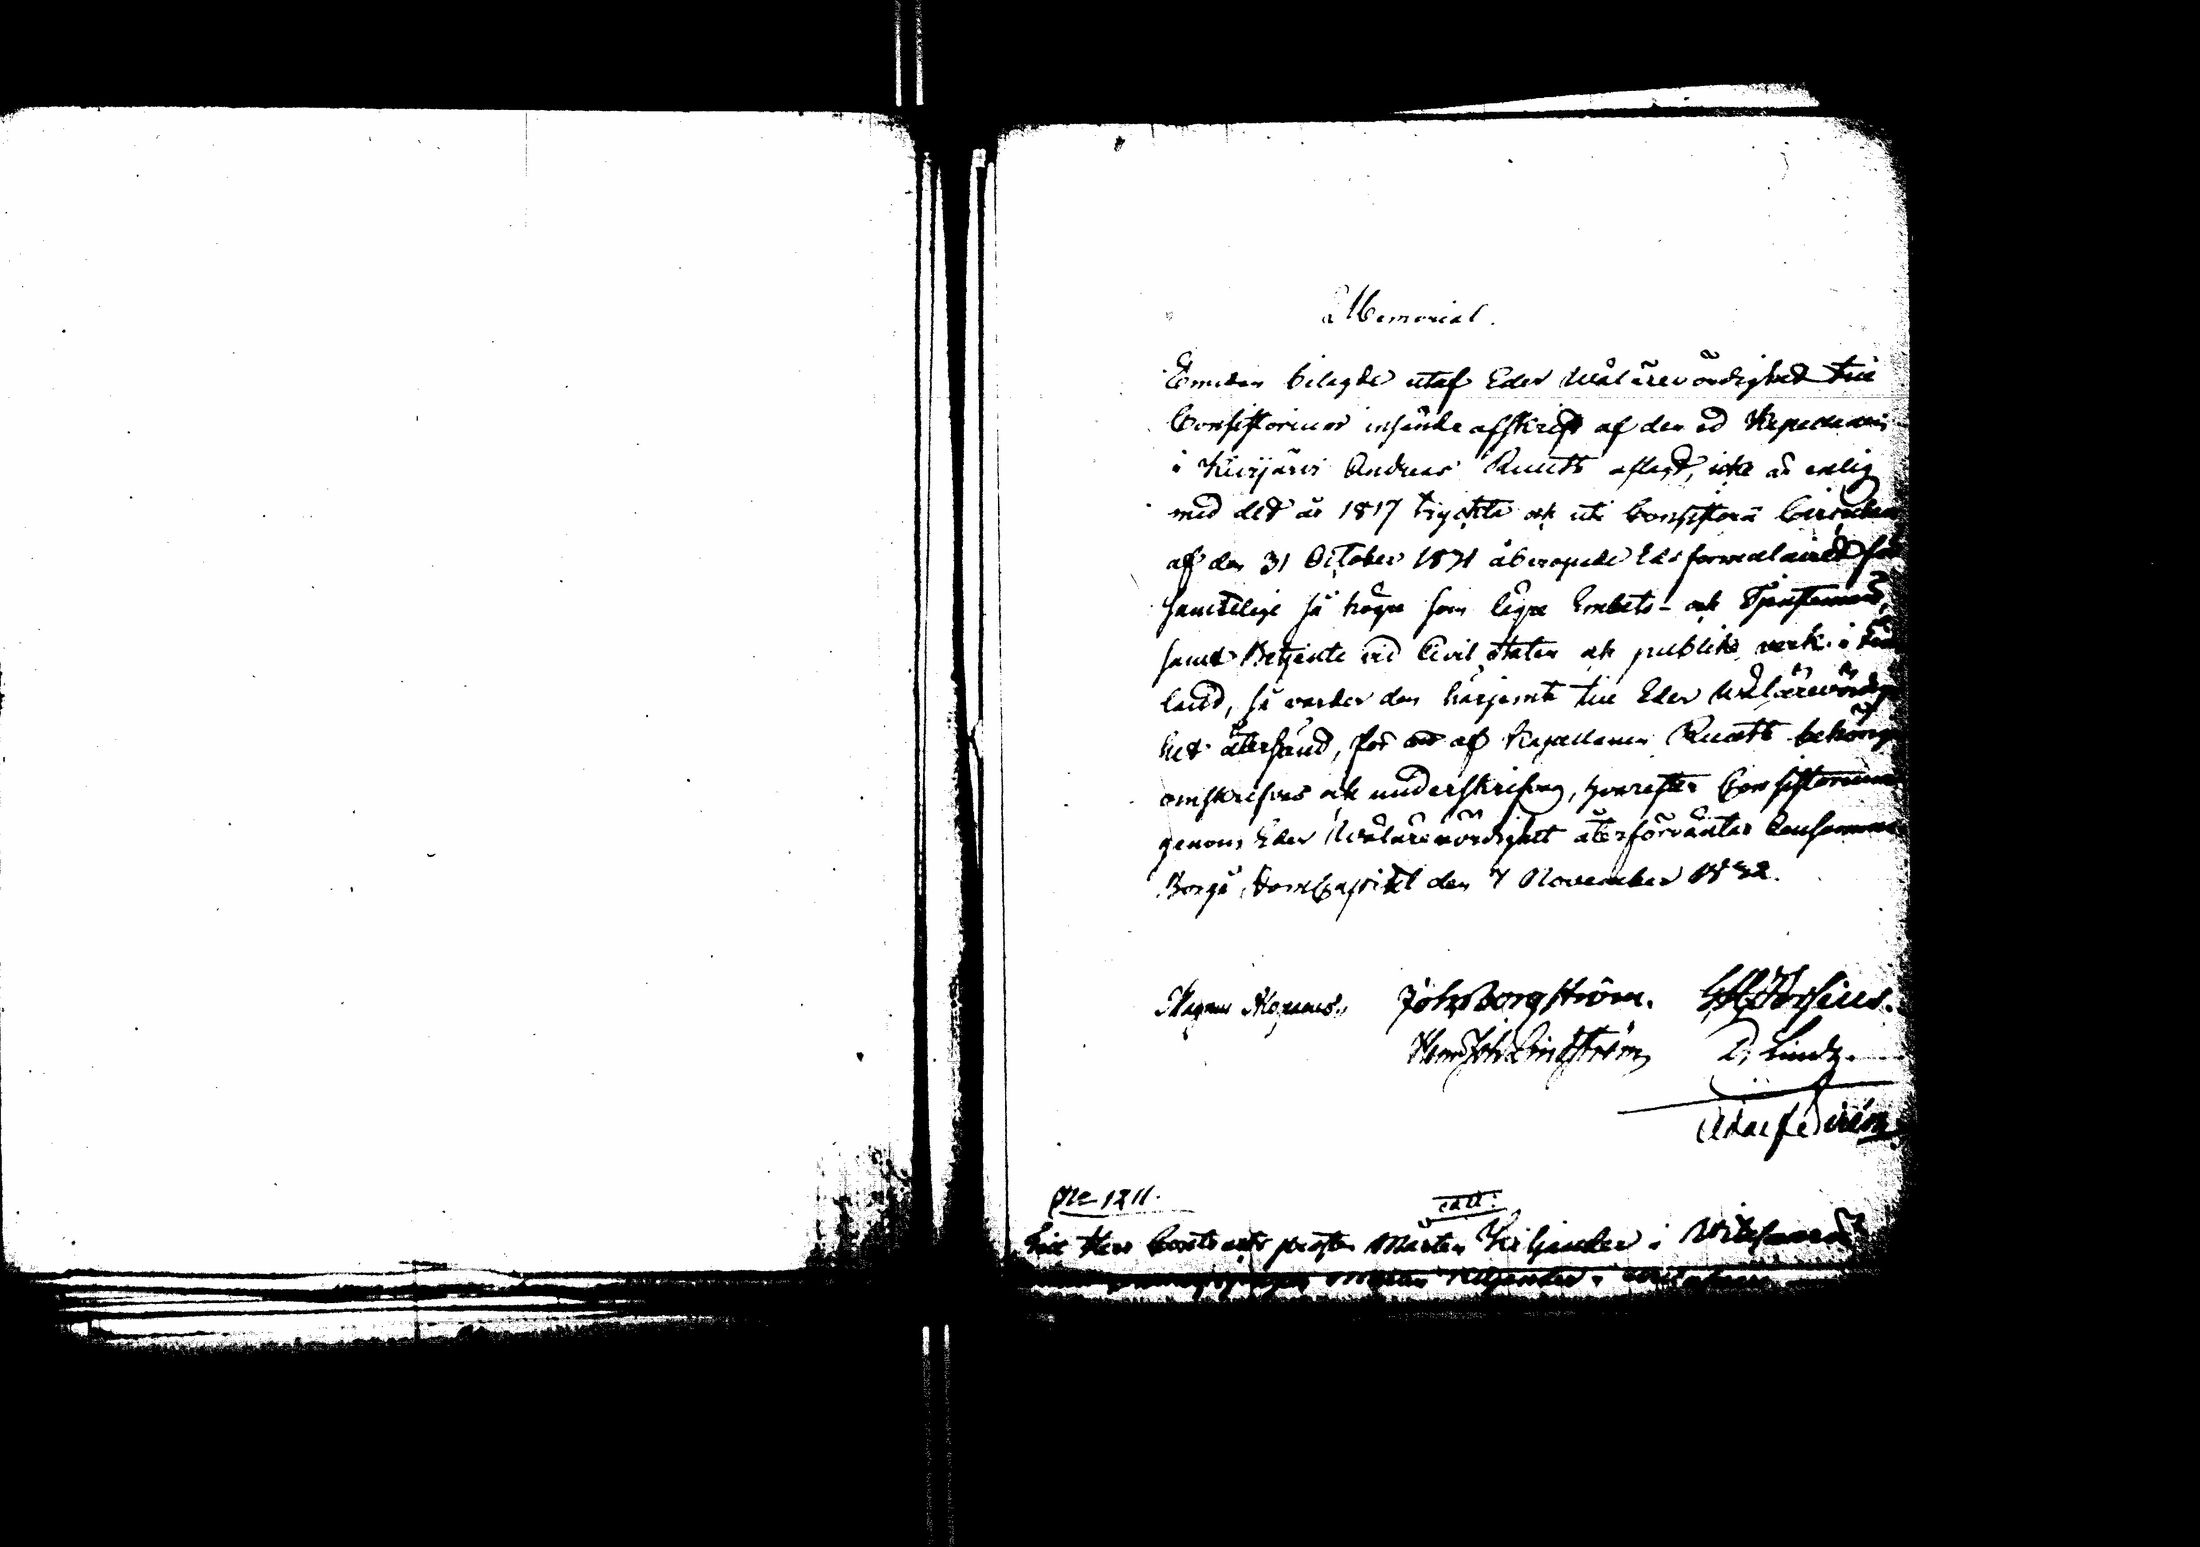 Memorial.
Emedan bilagde utaf Eder Wälärevördighet till
Consistorium insände afskrift af den ed Kapellanen
i Kivijärvi Andreas Ruuth aflagt, icke är enlig
med det år 1817 tryckta och uti Consistorii Circulair
af den 31 October 1871 åberopade Edsformulairet för
samtelige så högre som lägre Embets- och Tjensteman,
samt Betjente vid Civil staten och publike verk i Fin
land, så varder den härjemte till Eder Wälärevördig
het återsänd, för att af Kapellanen Ruuth behörigen
omskrifvas och underskrifvas, hvarefter Consistorium
genom Eder Wälärevördighet återförväntar densamma.
Borgå DomCapitel den 7 November 1822.
Magnus Alopaeus. Joh. Borgström.
Joh. Lindström
No 1211. call:
Till Herr Contracts prosten Mårten Kiljander i Wiitasaari